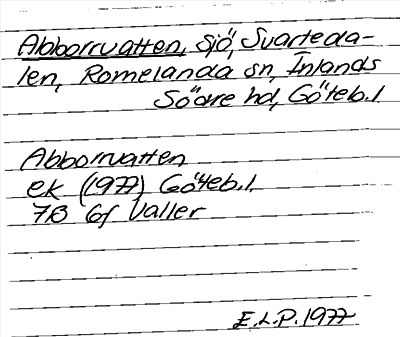 Abborrvatten, Sjö, Svarteda-
len, Romelanda sn, Inlands
Södre hd, Göteb.l.
Abborrvatten
ek (1977) Göteb.l.
7B 6f Valler
E.L.P. 1977